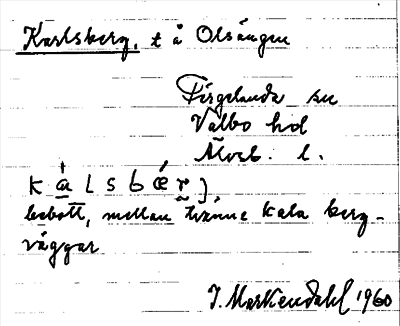 Karlsberg, t å Olsängen
Färgelanda sn
Valbo hd
Älvsb. l.
bebott, mellan tvänne kala berg-
väggar
J. Markendahl 1960